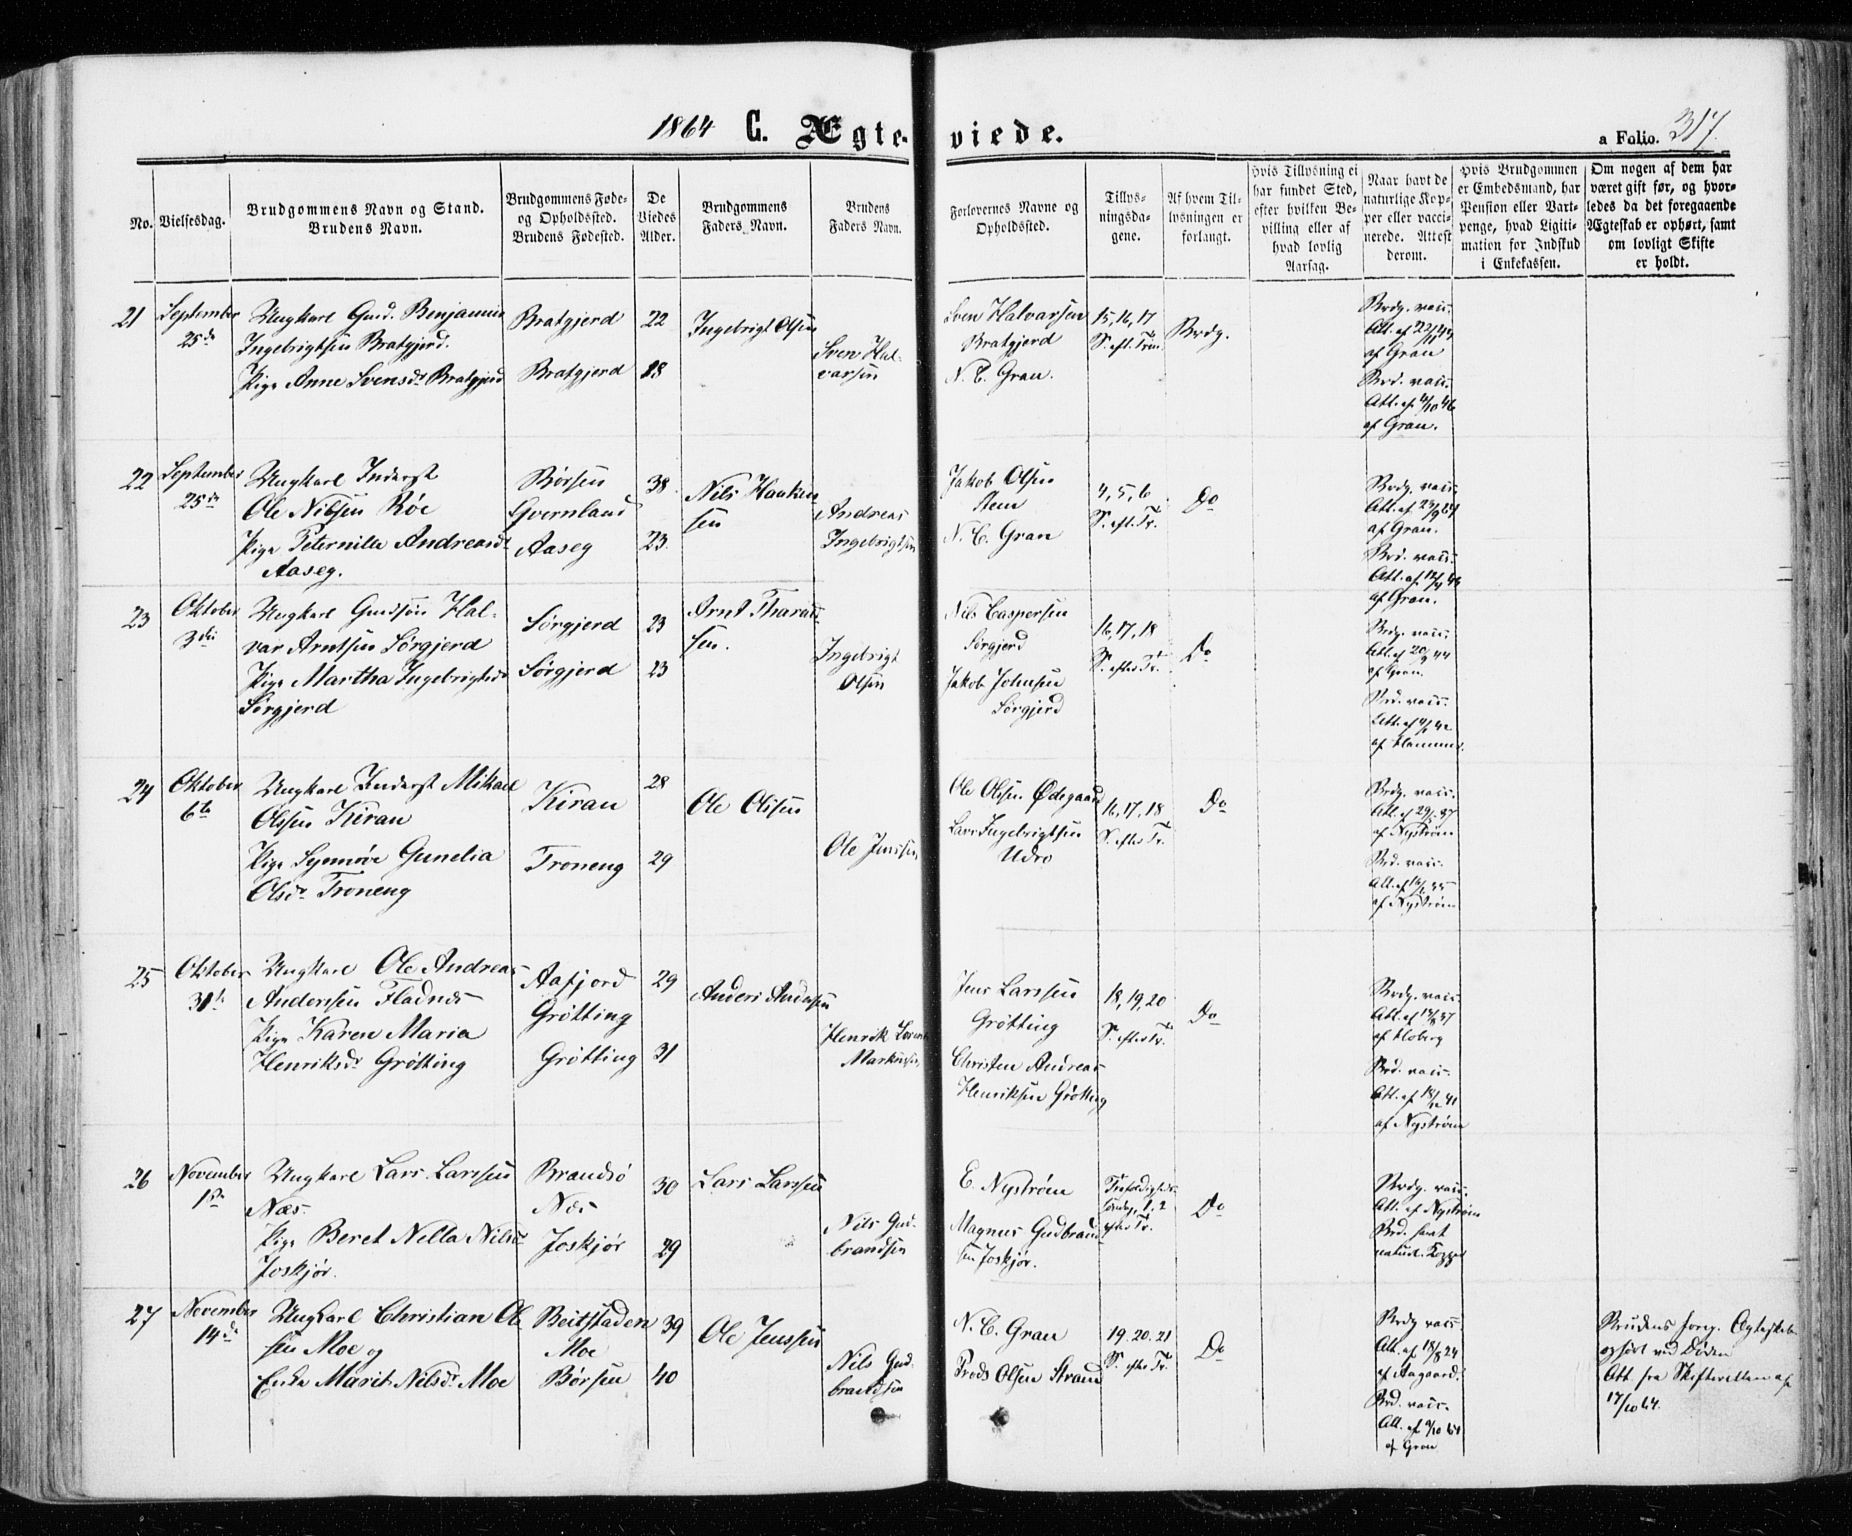 1864 C. Ægteviede. a Folio. 317.
No.
Vielsesdag.
Brudgommens Navn og Stand.
Brudens Navn.
Brudgommens Føde-
og Opholdssted.
Brudens Fødested.
De
Viedes
Alder.
Brudgommens
Faders Navn.
Brudens
Faders Navn.
Forlovernes Navne og
Opholdssted.
Tillys-
ningsda-
gene.
Af hvem Til-
lysningen er
forlangt.
Hvis Tillysning ei
har fundet Sted,
efter hvilken Be-
villing eller af
hvad lovlig
Aarsag.
Naar havt de
naturlige Kop-
per eller vacci-
nerede. Attest
derom.
Hvis Brudgommen
er Embedsmand, har
Pension eller Vart-
penge, hvad Ligiti-
mation for Indskud
i Enkekassen.
Om nogen af dem har
været gift før, og hvor-
ledes da det foregaaende
Ægteskab er ophørt, samt
om lovligt Skifte
er holdt.
21
September
25de
Ungkarl Gmd. Benjamin
Ingebrigtsen Bratgjerd.
Pige Anne Svensdr Bratgjerd
Bratgjerd
Bratgjerd
22
18
Ingebrigt Olsen
Sven Hal-
varsen
Sven Halvarsen
Bratgjerd
N. C. Gran.
15, 16, 17
S. eft. Trin.
Brdg.
Brdg. vacc.
Att. af 22/11 44
af Gran
Brd. vacc.
Att. af 4/10 46
af Gran.
22
September
25de
Ungkarl Inderst
Ole Nilsen Røe
Pige Peternille Andreasdr
Aaseg.
Børsen
Gvernland
Aaseg
38
23
Nils Haaken
sen
Andreas
Ingebrigtsen
Jakob Olsen
Nem
N. C. Gran
4, 5, 6
S. eft. Tr.
Do
Brdg. vacc.
Att. af 23/9 64
af Gran.
Brd. vacc.
Att. af 12/9 44
af Gran.
23
Oktober
3die
Ungkarl Gmdsøn Hal-
var Arntsen Sørgjerd
Pige Martha Ingebrigtsdr
Sørgjerd
Sørgjerd
Sørgjerd
23
23
Arnt Tharald
sen.
Ingebrigt
Olsen
Nils Caspersen
Sørgjerd
Jakob Johnsen
Sørgjerd
16, 17, 18
S. efter Tr.
Do
Brdg. vacc.
Att. af 20/9 44
af Gran.
Brd. vacc.
24
Oktober
6te
Ungkarl Inderst Mikael
Olsen Kiran
Pige Synnøve Gunelia
Olsdr Troneng
Kiran
Troneng
28
29
Ole Olsen
Ole Jenssen
Ole Olsen Ødegaard
Lars Ingebrigtsen
Udro
16, 17, 18
S. efter Tr.
Do
Brdg. vacc.
af Nystrøm
Brd. vacc.
af Nystrøm
25
Oktober
31te
Ungkarl Ole Andreas
Andersen Fladnes
Pige Karen Maria
Henriksdr Grøtting
Aafjord
Grøtting
Grøtting
29
31
Anders Andersen
Henrik Lorents
Markussen
Jens Larssen
Grøtting
Christen Andreas
Henriksen Grøtting
18, 19, 20
S. efter Tr.
Do
Brdg. vacc.
Brd. vacc.
Att. af 18/12 41
af Nystrøm
26
November
1ste
Ungkarl Lars Larssen
Næs.
Pige Beret Nella Nilsdr
Joskjør.
Brandsø
Næs
Joskjør
30
29
Lars Larssen
Nils Gud-
brandsen
E. Nystrøm
Magnus Gudbrand-
sen Joskjør.
Trefoldigheds-
søndag, 1, 2
efter Tr.
Do
Brdg. vacc.
Att. af Nystrøm
Brd. havt
naturl. Kopper
27
November
14de
Ungkarl Christian Ol
sen Moe og
Enke Marit Nilsdr Moe
Beitstaden
Moe
Børsen
39
40
Ole Jenssen
Nils Gud-
brandsen
N. C. Gran
Trods Olsen Strand
19. 20. 21
S. efter Tr.
Do
Brdg. vacc
Att. af 18/8 24
af Aagaard.
Brd. vacc.
Att. af 9/10 64
af Gran
Brudens foreg. Ægteskab
ophørt ved Døden
Att. fra Skifteretten af
17/10 64.